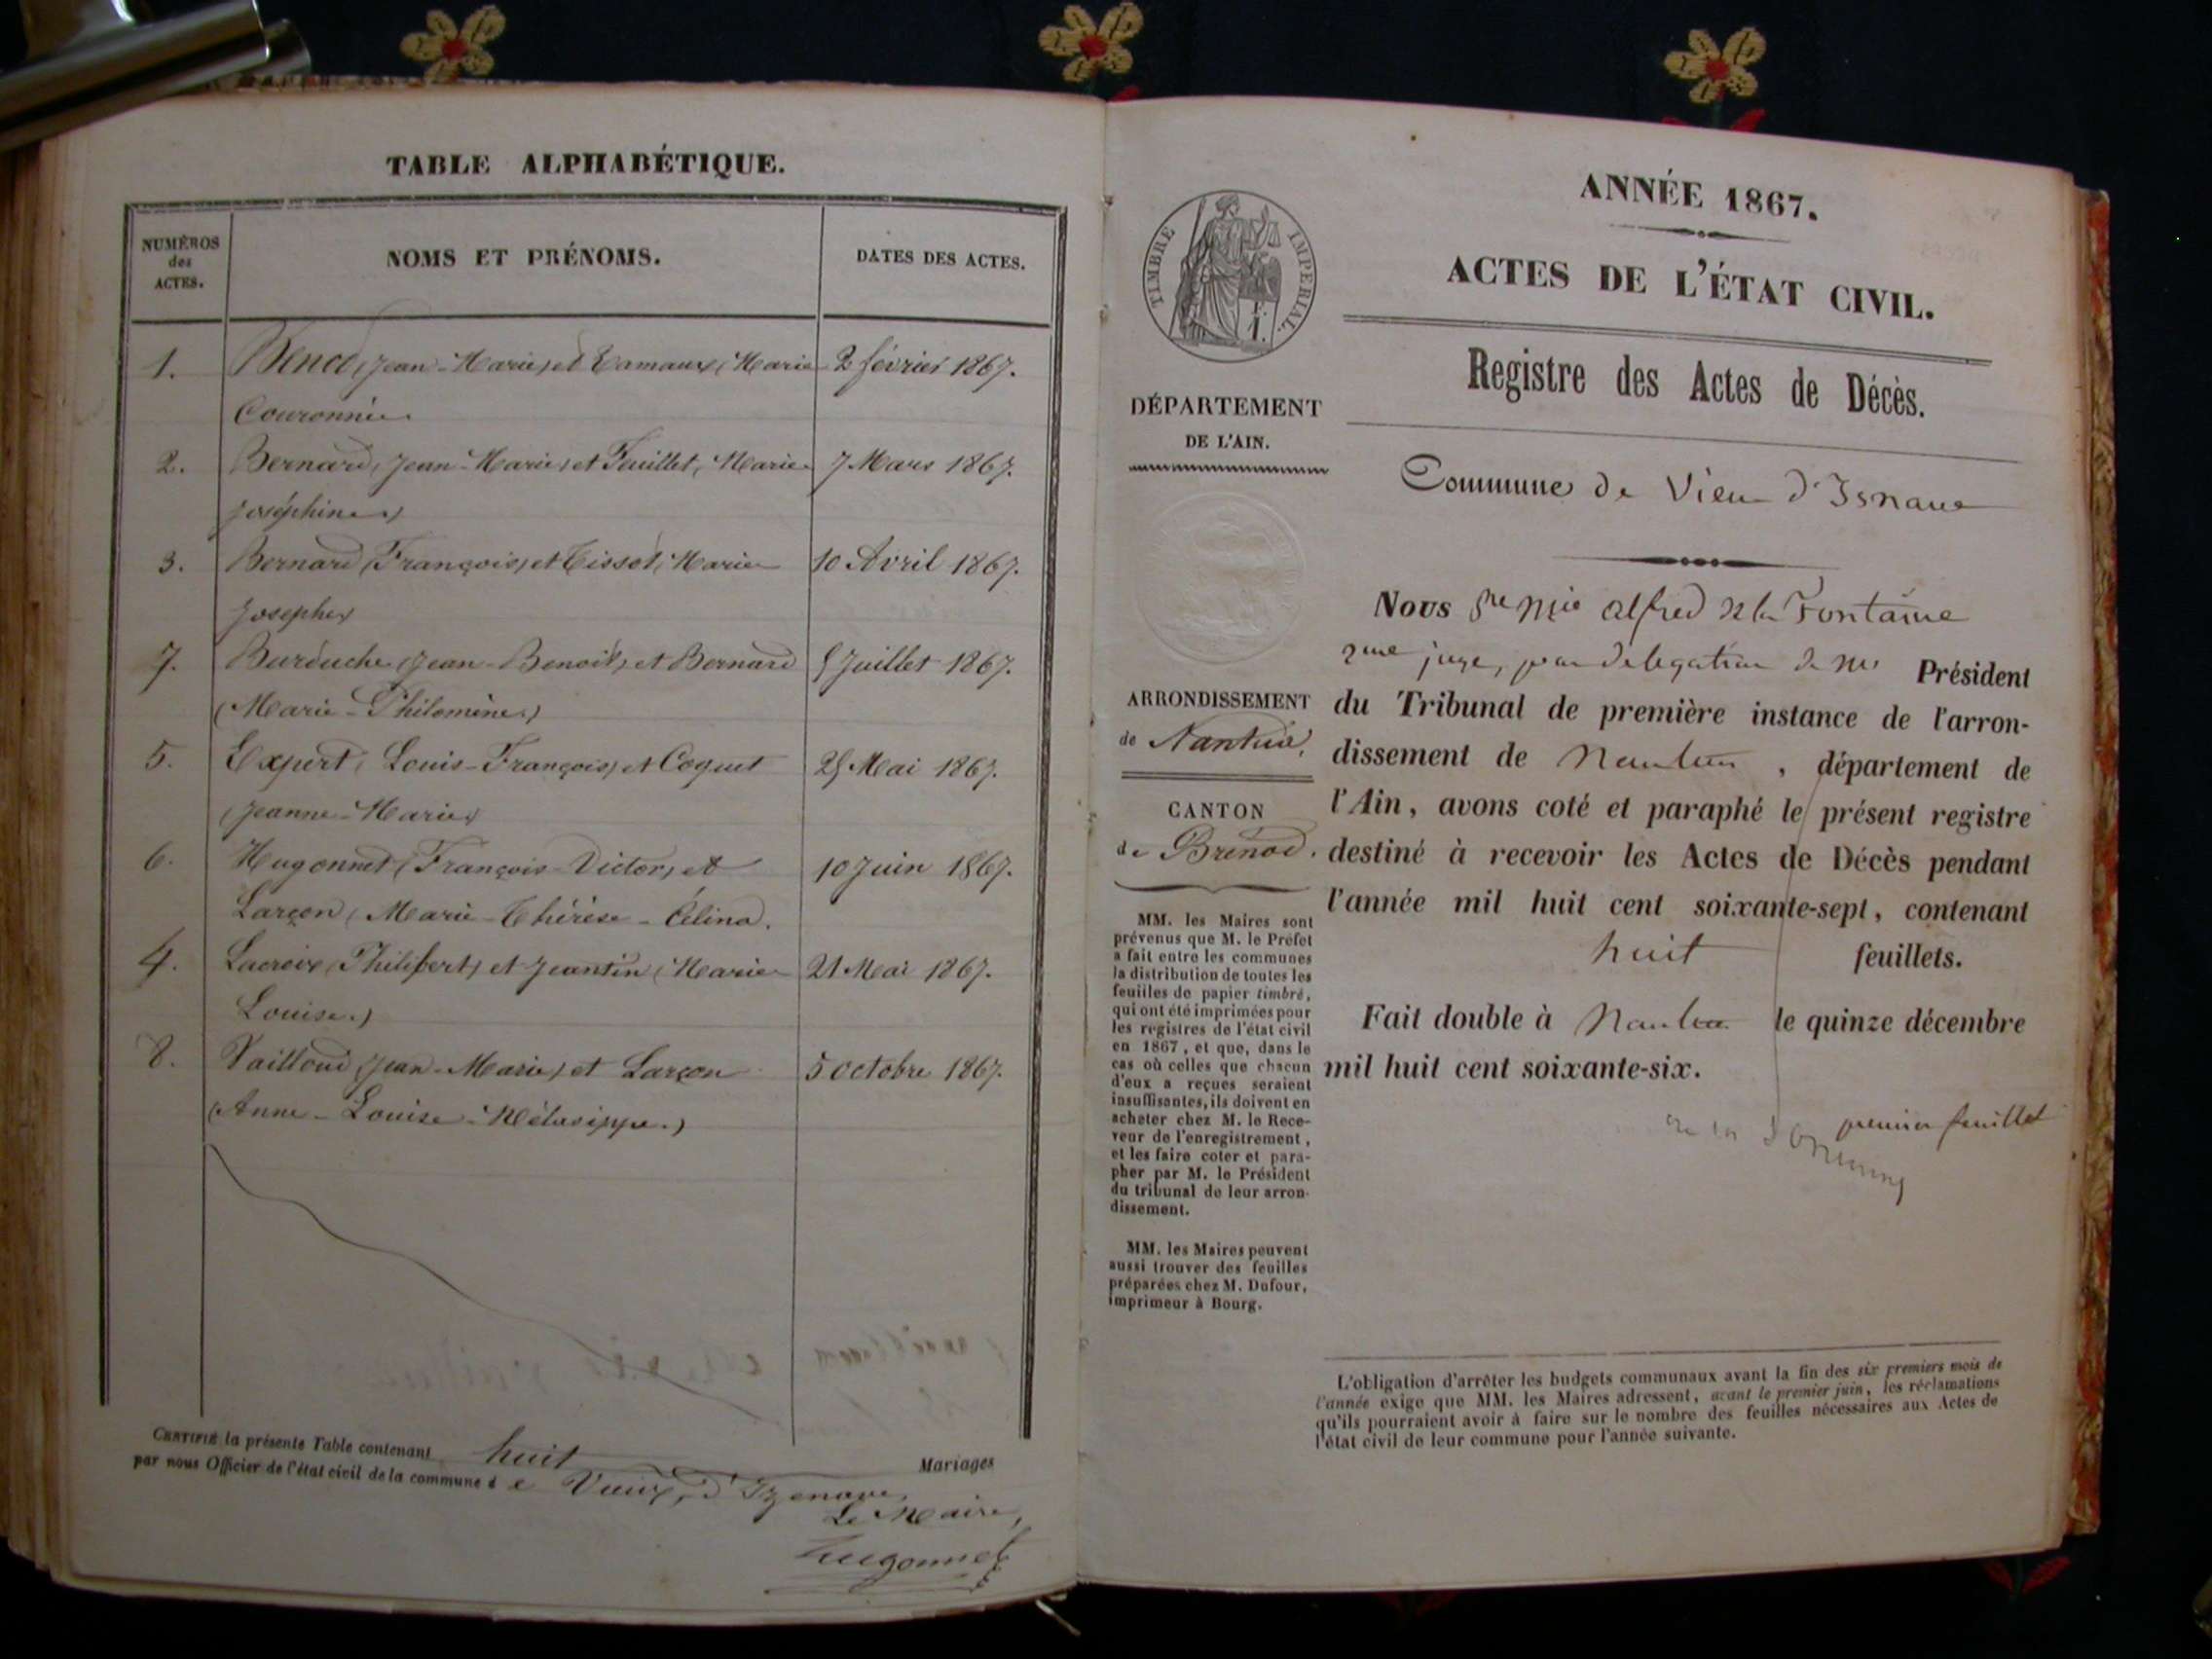 TABLE ALPHABÉTIQUE.
NUMÉROS
des
ACTES.
NOMS ET PRÉNOMS.
DATES DES ACTES.
1. (Jean-Marie) et (Marie 2 février 1867.
Couronnée.
2. Bernard, Jean-Marie, et Feuillet, Marie 7 Mars 1867.
Joséphine)
3. Bernard (François) et Tissot, Marie 10 Avril 1867.
Josephe)
7. Burduche (Jean-Benoit) et Bernard 5 Juillet 1867.
(Marie-Philomène.)
5. Expert, Louis-François) et Coquet 25 Mai 1867.
(Jeanne-Marie)
6. Hugonnet (François-Victor) et 10 Juin 1867.
Larçon (Marie-Thérèse-Célina.
4. Lacroix (Philibert) et Jeantin (Marie 21 Mai 1867.
Louise.)
8. Vailloud (Jean-Marie) et Larçon 5 octobre 1867.
(Anne-Louise-Mélasippe.)
CERTIFIÉ la présente Table contenant huit Mariages
par nous Officier de l'état civil de la commune de Vieux d'Izenave
Le Maire,
Hugonnet
ANNÉE 1867.
ACTES DE L'ÉTAT CIVIL.
Registre des Actes de Décès.
TIMBRE IMPERIAL.
1.
DÉPARTEMENT
DE L'AIN.
ARRONDISSEMENT
de Nantua,
CANTON
de Brenod.
MM. les Maires sont
prévenus que M. le Préfet
a fait entre les communes
la distribution de toutes les
feuilles de papier timbré,
qui ont été imprimées pour
les registres de l'état civil
en 1867, et que, dans le
cas où celles que chacun
d'eux a reçues seraient
insuffisantes, ils doivent en
acheter chez M. le Rece-
veur de l'enregistrement,
et les faire coter et para-
pher par M. le Président
du tribunal de leur arron-
dissement.
MM. les Maires peuvent
aussi trouver des feuilles
préparées chez M. Dufour,
imprimeur à Bourg.
Commune de Vieu d'Isnave
Nous alfred de la Fontaine
juge, par delegation de Mr Président
du Tribunal de première instance de l'arron-
dissement de Nantua, département de
l'Ain, avons coté et paraphé le présent registre
destiné à recevoir les Actes de Décès pendant
l'année mil huit cent soixante-sept, contenant
huit feuillets.
Fait double à Nantua le quinze décembre
mil huit cent soixante-six.
premier feuillet
L'obligation d'arrêter les budgets communaux avant la fin des six premiers mois de
l'année exige que MM. les Maires adressent, avant le premier juin, les réclamations
qu'ils pourraient avoir à faire sur le nombre des feuilles nécessaires aux Actes de
l'état civil de leur commune pour l'année suivante.